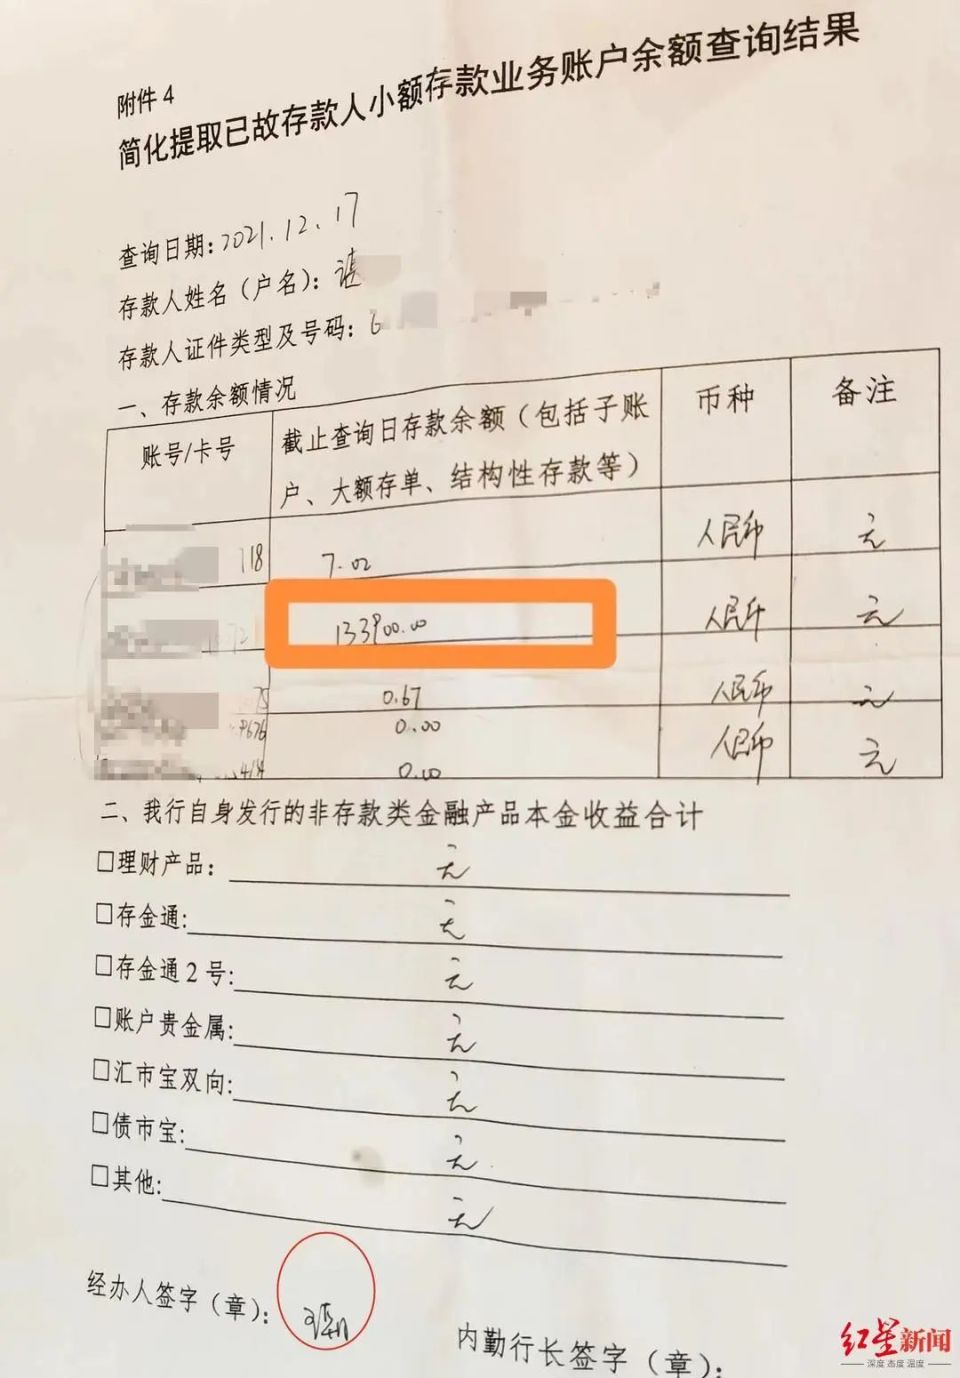 附件4
简化提取已故存款人小额存款业务账户余额查询结果
查询日期:2021.12.17
存款人姓名(户名):谌
存款人证件类型及号码:6
一、存款余额情况
账号/卡号 截止查询日存款余额(包括子账户、大额存单、结构性存款等) 币种 备注
118 7.02 人民币 元
133900.00 人民币 元
75 0.67 人民币 元
9676 0.00 人民币 元
0.00
二、我行自身发行的非存款类金融产品本金收益合计
□理财产品: 无
□存金通: 无
□存金通2号: 无
□账户贵金属: 无
□汇市宝双向: 无
□债市宝: 无
□其他: 无
经办人签字(章):
内勤行长签字(章):
红星新闻
深度 态度 温度